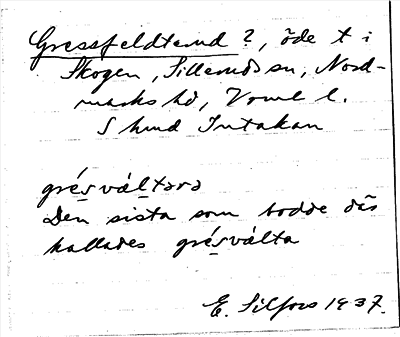 Gressfeldtend ?, öde t i
Skogen, Sillerudssn, Nord-
markshd, Vrml l.
S hmd Intakan
grésváltərə
Den sista som bodde där
kallades grésválta
E. Silfors 1937.